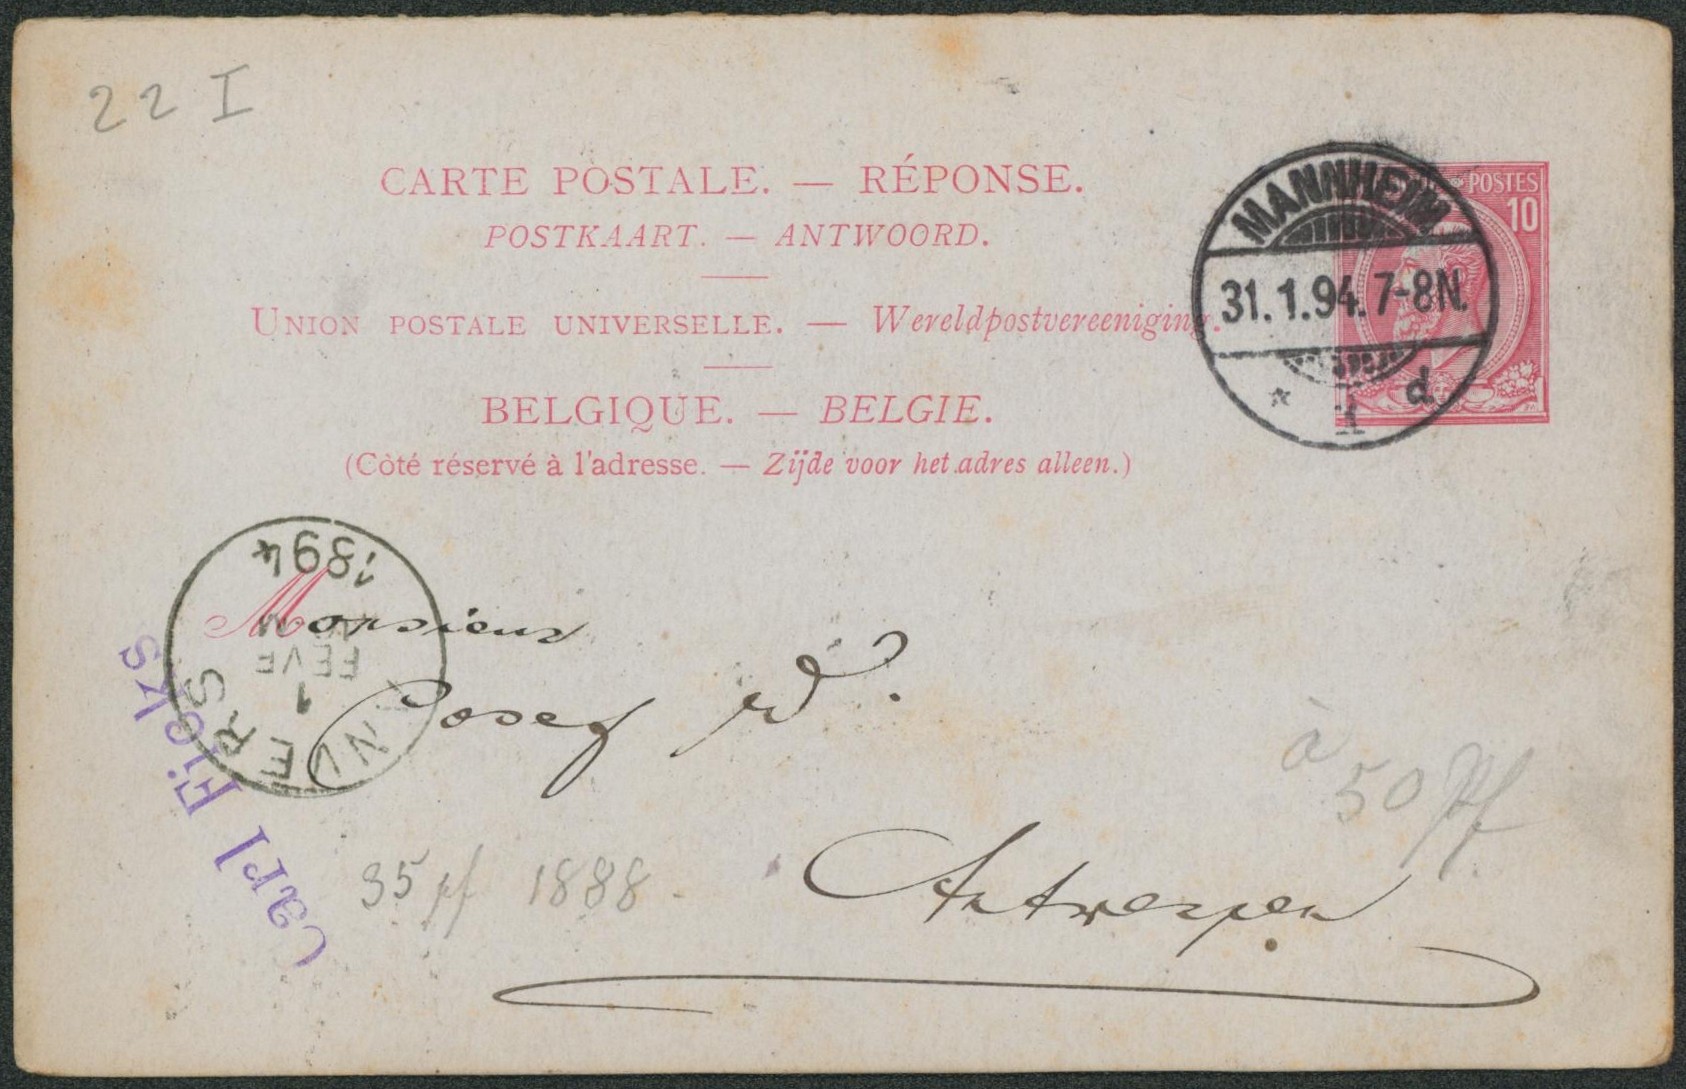 22 I
CARTE POSTALE. — RÉPONSE.
POSTKAART. — ANTWOORD.
UNION POSTALE UNIVERSELLE. — Wereldpostvereeniging.
BELGIQUE. — BELGIE.
(Côté réservé à l'adresse. — Zijde voor het adres alleen.)
POSTES
10
MANNHEIM
31.1.94.7-8N.
* 1 d.
ANVERS
1
FEVR
1894
Monsieur
Josef
Antwerpen
Carl Ficks
35 pf 1888
à
50 Pf